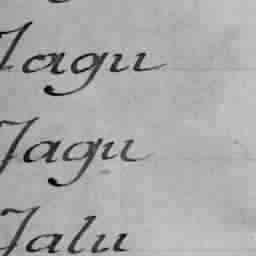 Jagu
Jagu
Jalu